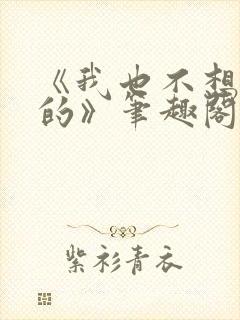 《我也不想
的》笔趣阁
紫衫青衣